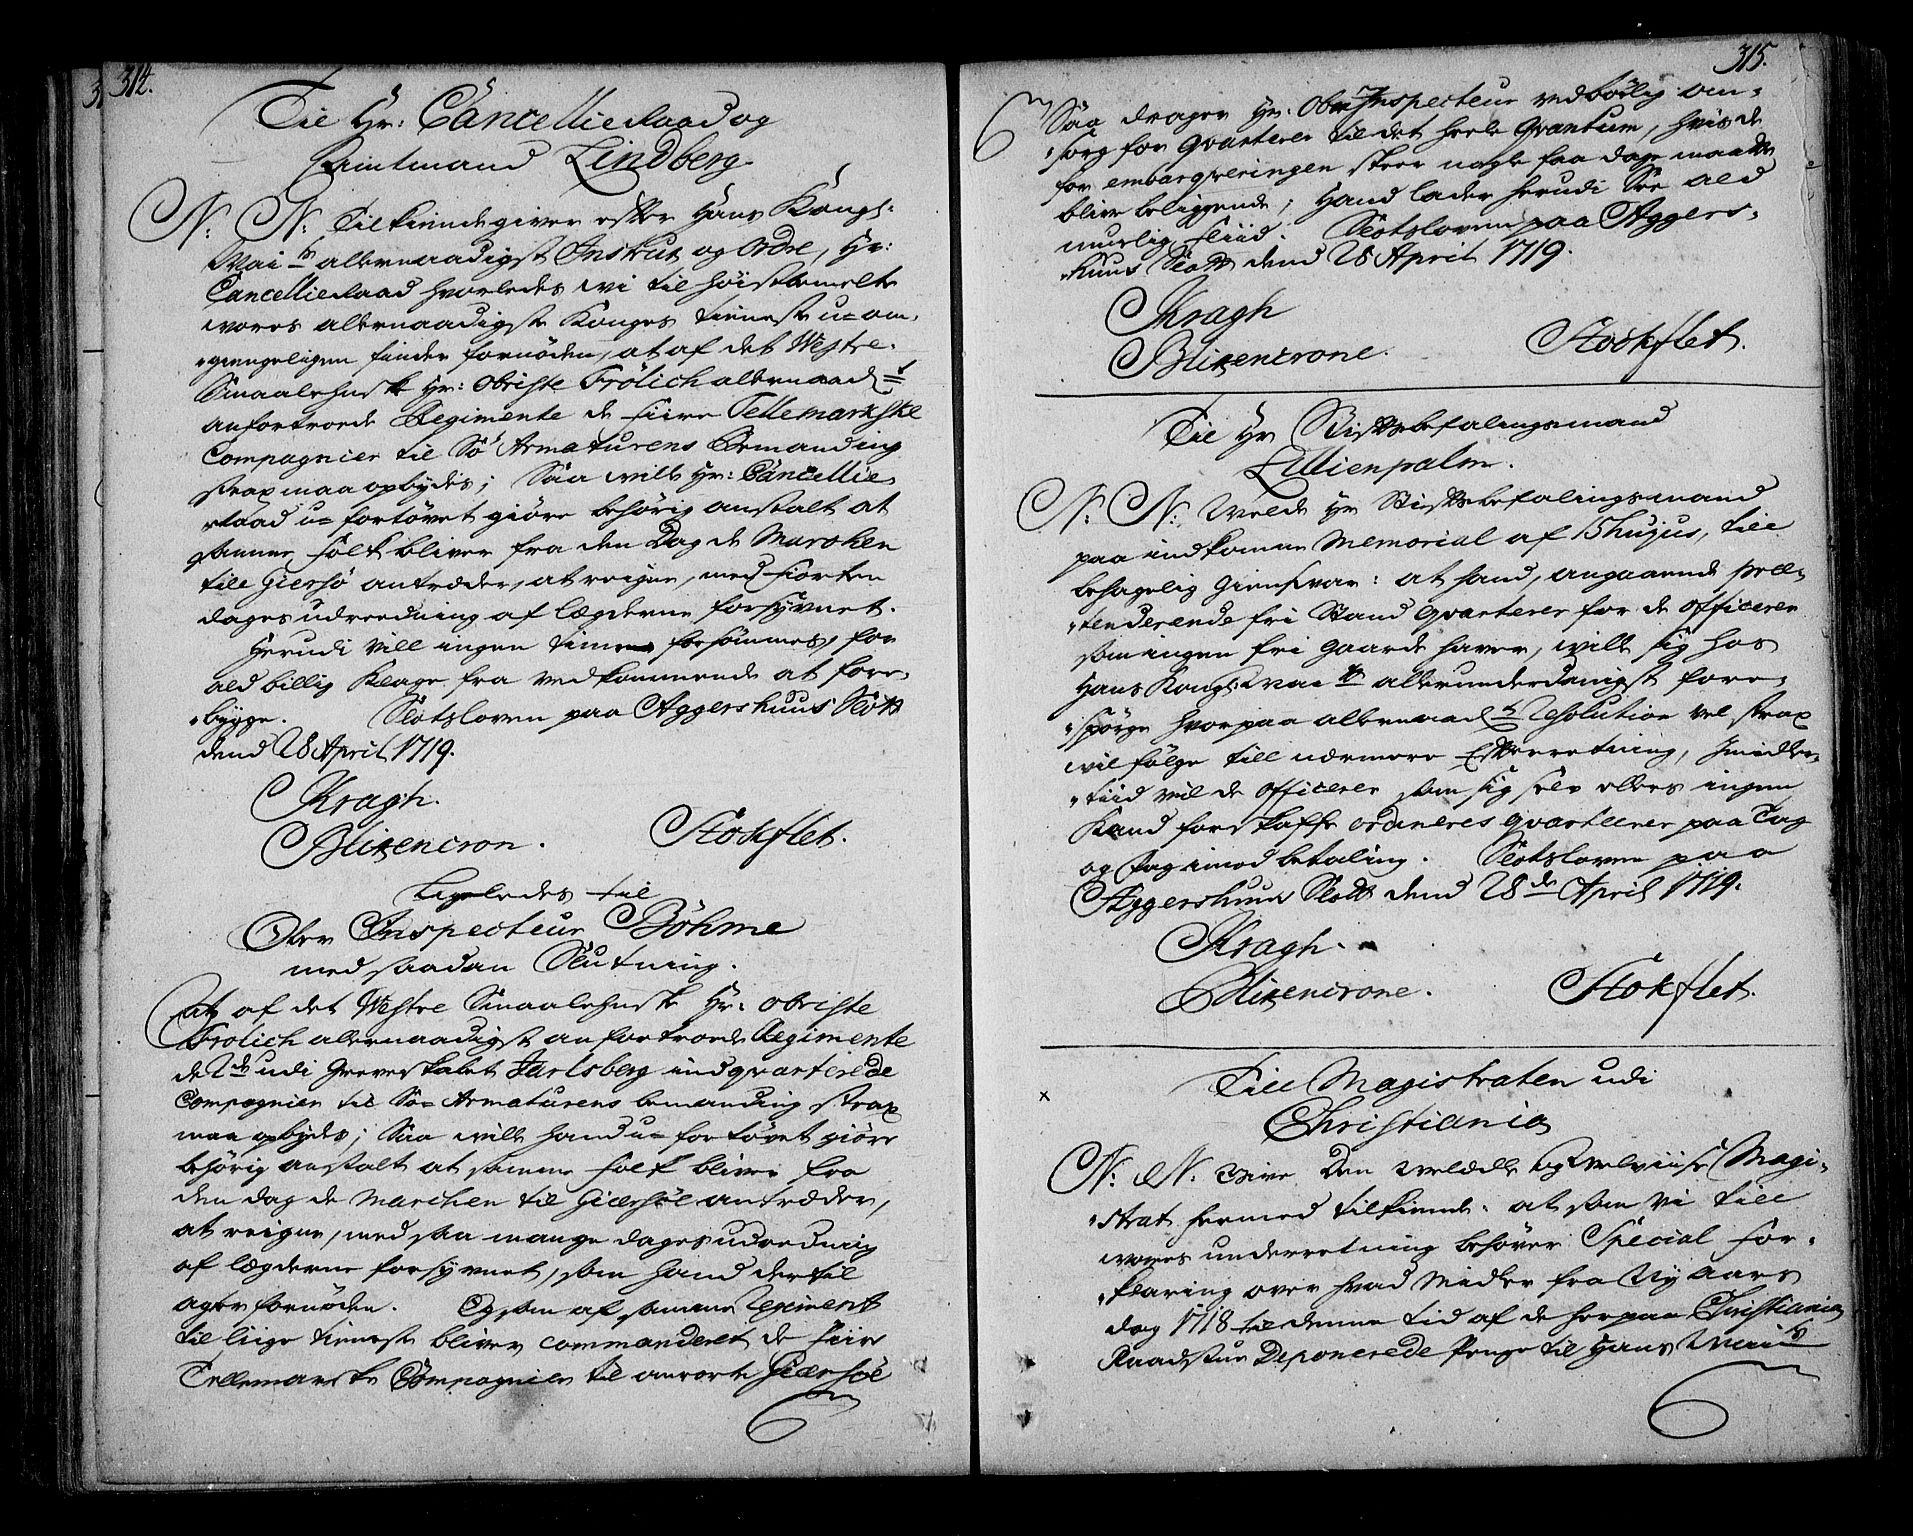 314.
Til Hr: Cancellie Raad og
Amtmand Lindberg.
N: N: Tilkiendegiver efter Hans Kongl:
May:ts allernaadigst Instrux og Ordre, Hr:
Cancellie Raad hvorledes wi til høistbemelte
wores allernaadigste Konges tieneste u-om,
"giengeligen finder fornøden, at af det Westre.
Smaalehnske Hr: Obriste Frölich allernaad:
anfortroede Regimente de fiire Tellemarkske
Compagnier til Sö Armaturens Bemanding
strax maa opbydes; Saa wilde Hr: Cancellie
Raad u-fortövet giöre behörig anstalt at
samme folk bliver fra den Dag de Marchen
till Giersö antræder, at reigne, med fiorten
dages udreedning af lægderne forsÿvnet.
Herudi vill ingen tiime forsömmes, for
ald billig Klage fra vedkommende at fore-
"bygge. Slotsloven paa Aggershuus Slott
dend 28 April 1719.
Kragh.
Blixencron. Stokflet.
Ligeledes til
Ober Inspecteur Böhme
med saadan Slutning.
At af det Westre Smaalehnske Hr: Obriste
Frolich allernaadigst anfortroede Regimente
de 2de udi Grevskabet Jarlsberg indqvarterede
Compagnier til Sö- Armaturens bemanding strax
maa opbydes; Saa wilde hand u-fortövet giöre
behörig anstalt at samme folk bliver fra
den dag de Marchen til Giersöe antræder,
at reigne, med saa mange dages udredning
af lægderne forsyvnet, som hand dertil
agter fornöden. Og som af samme Regiment
til liige tieneste bliver commanderet de fiire
Tellemarske Compagnier til anrorte Giersöe
315.
Saa drager Hr: Ober Inspecteur vedbörlig om-
"sorg for Qvarterer til det heele Qvantum, hvis de
for embarqveringen skeer nogle faa dage maatte
blive beliggende; Hand lader herudi See ald
muelig fliid. Slotsloven paa Aggers-
"huus Slott dend 28 April 1719.
Kragh
Blixencrone. Stockflet.
Til Hr Stiftsbefalingsmand
Lillienpalm.
N: N: Melde Hr Stiftsbefalingsmand
paa indkomne Memorial af 15 hujus, till
behagelig Giensvar: at hand, angaaende præ-
"tenderende fri Stand qvarterer for de Officerer
som ingen fri gaarde haver, wilde sig hos
Hans Kongl: May:tt allerunderdanigst fore-
"spörge hvorpaa allernaad:te Resolution vel strax
wil fölge till nærmere Efterretning, Imidler-
"tiid vil de Officerer som sig selv ellers ingen
Kand forskaffe ordineres qvarteerer paa Tag
og fag imod betaling. Slotsloven paa
Aggershuus Slott dend 28de April 1719.
Kragh.
Blixencrone. Stokflet.
x
Till Magistraten udi
Christiania
N: N: Give Den velædle og velviise Magi-
"strat hermed tilkiende, at som vi till
wores underretning behöver Special for-
"klaring over hvad Midler fra Nÿ aars
dag 1718 til denne tid af de her paa Christiania
Raadstue Deponerede Penge til Hans May:ts